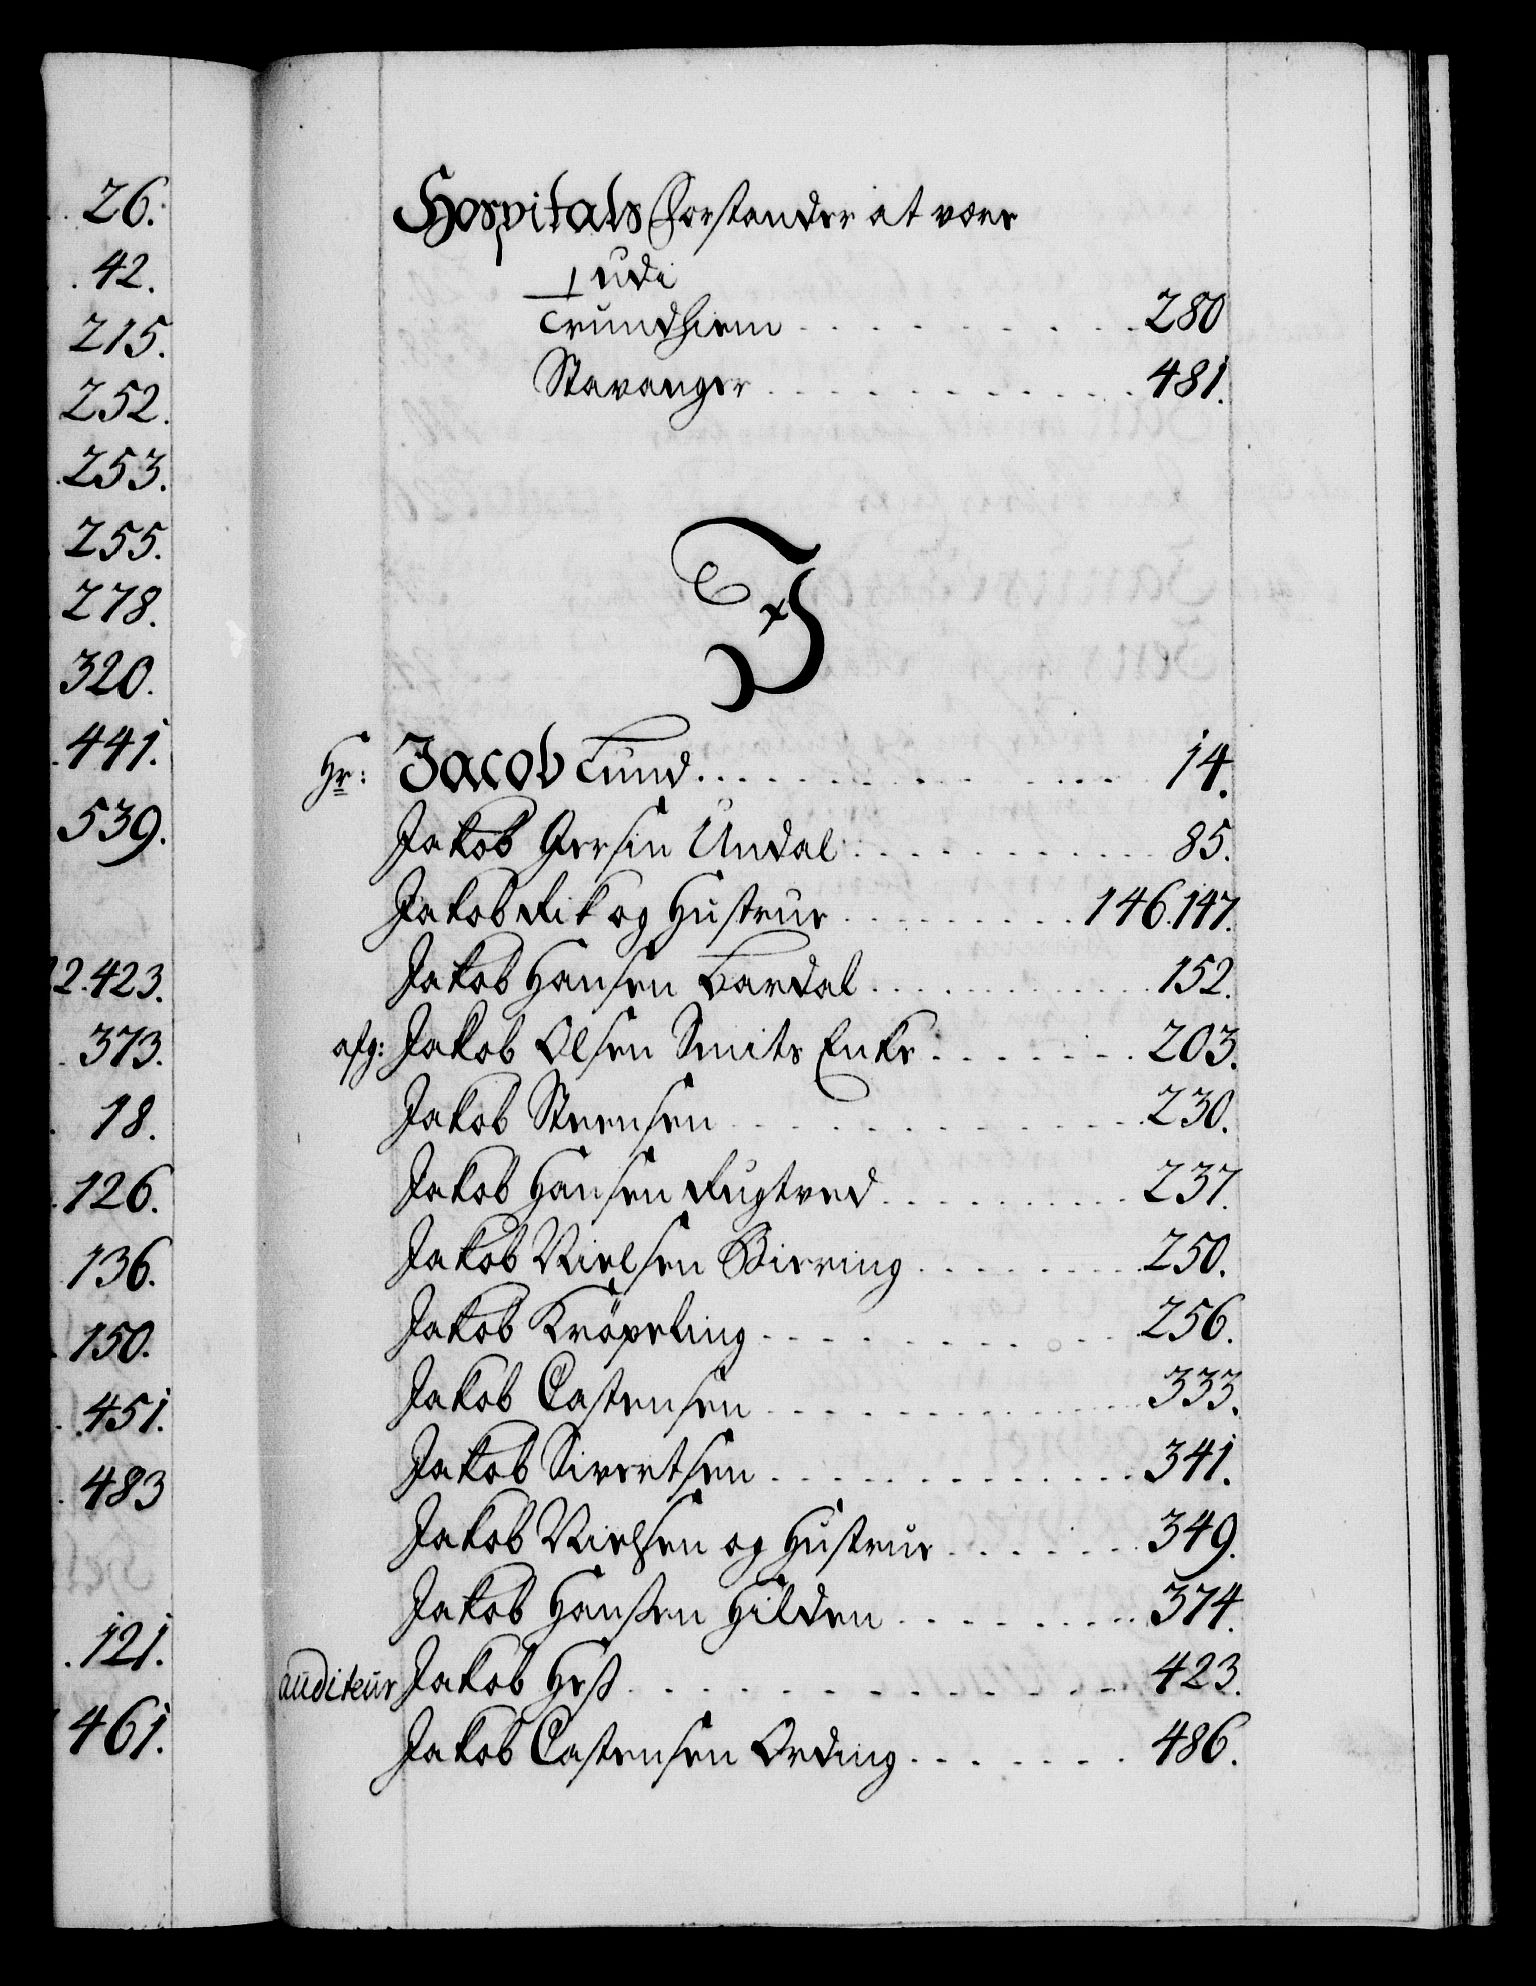 26.
42.
215.
252.
253.
255.
278.
320.
441.
539.
2.423.
373.
18.
126.
136.
150.
451.
483
121.
461.
Hospitals Forstander at være
udi
Trundhiem 280
Stavanger 481.
J
Hr: Jacob Lund 14.
Jakob Gersin Undal 85.
Jakob Fik og Hustrue 146.147.
Jakob Hansen Lardal 152.
afg: Jakob Olsen Smits Enke 203.
Jakob Steensen 230.
Jakob Hansen Fugtved 237.
Jakob Nielsen Biering 250.
Jakob Kröpeling 256.
Jakob Castensen 333.
Jakob Sivertsen 341.
Jakob Nielsen og Hustrue 349.
Jakob Hanssen Hilden 374.
auditeur Jakob Heß 423.
Jakob Castensen Ording 486.